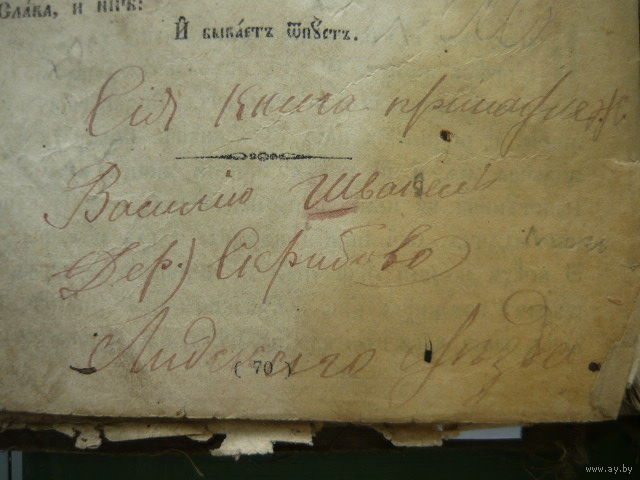 Сла́ва, и ны́нѣ:
И҆ быва́етъ ѿпꙋ́стъ.
Сія Книга принадлеж.
Василію
Дер.) Скрибово
( 70 )
Лидскаго уѣзда
www.ay.by